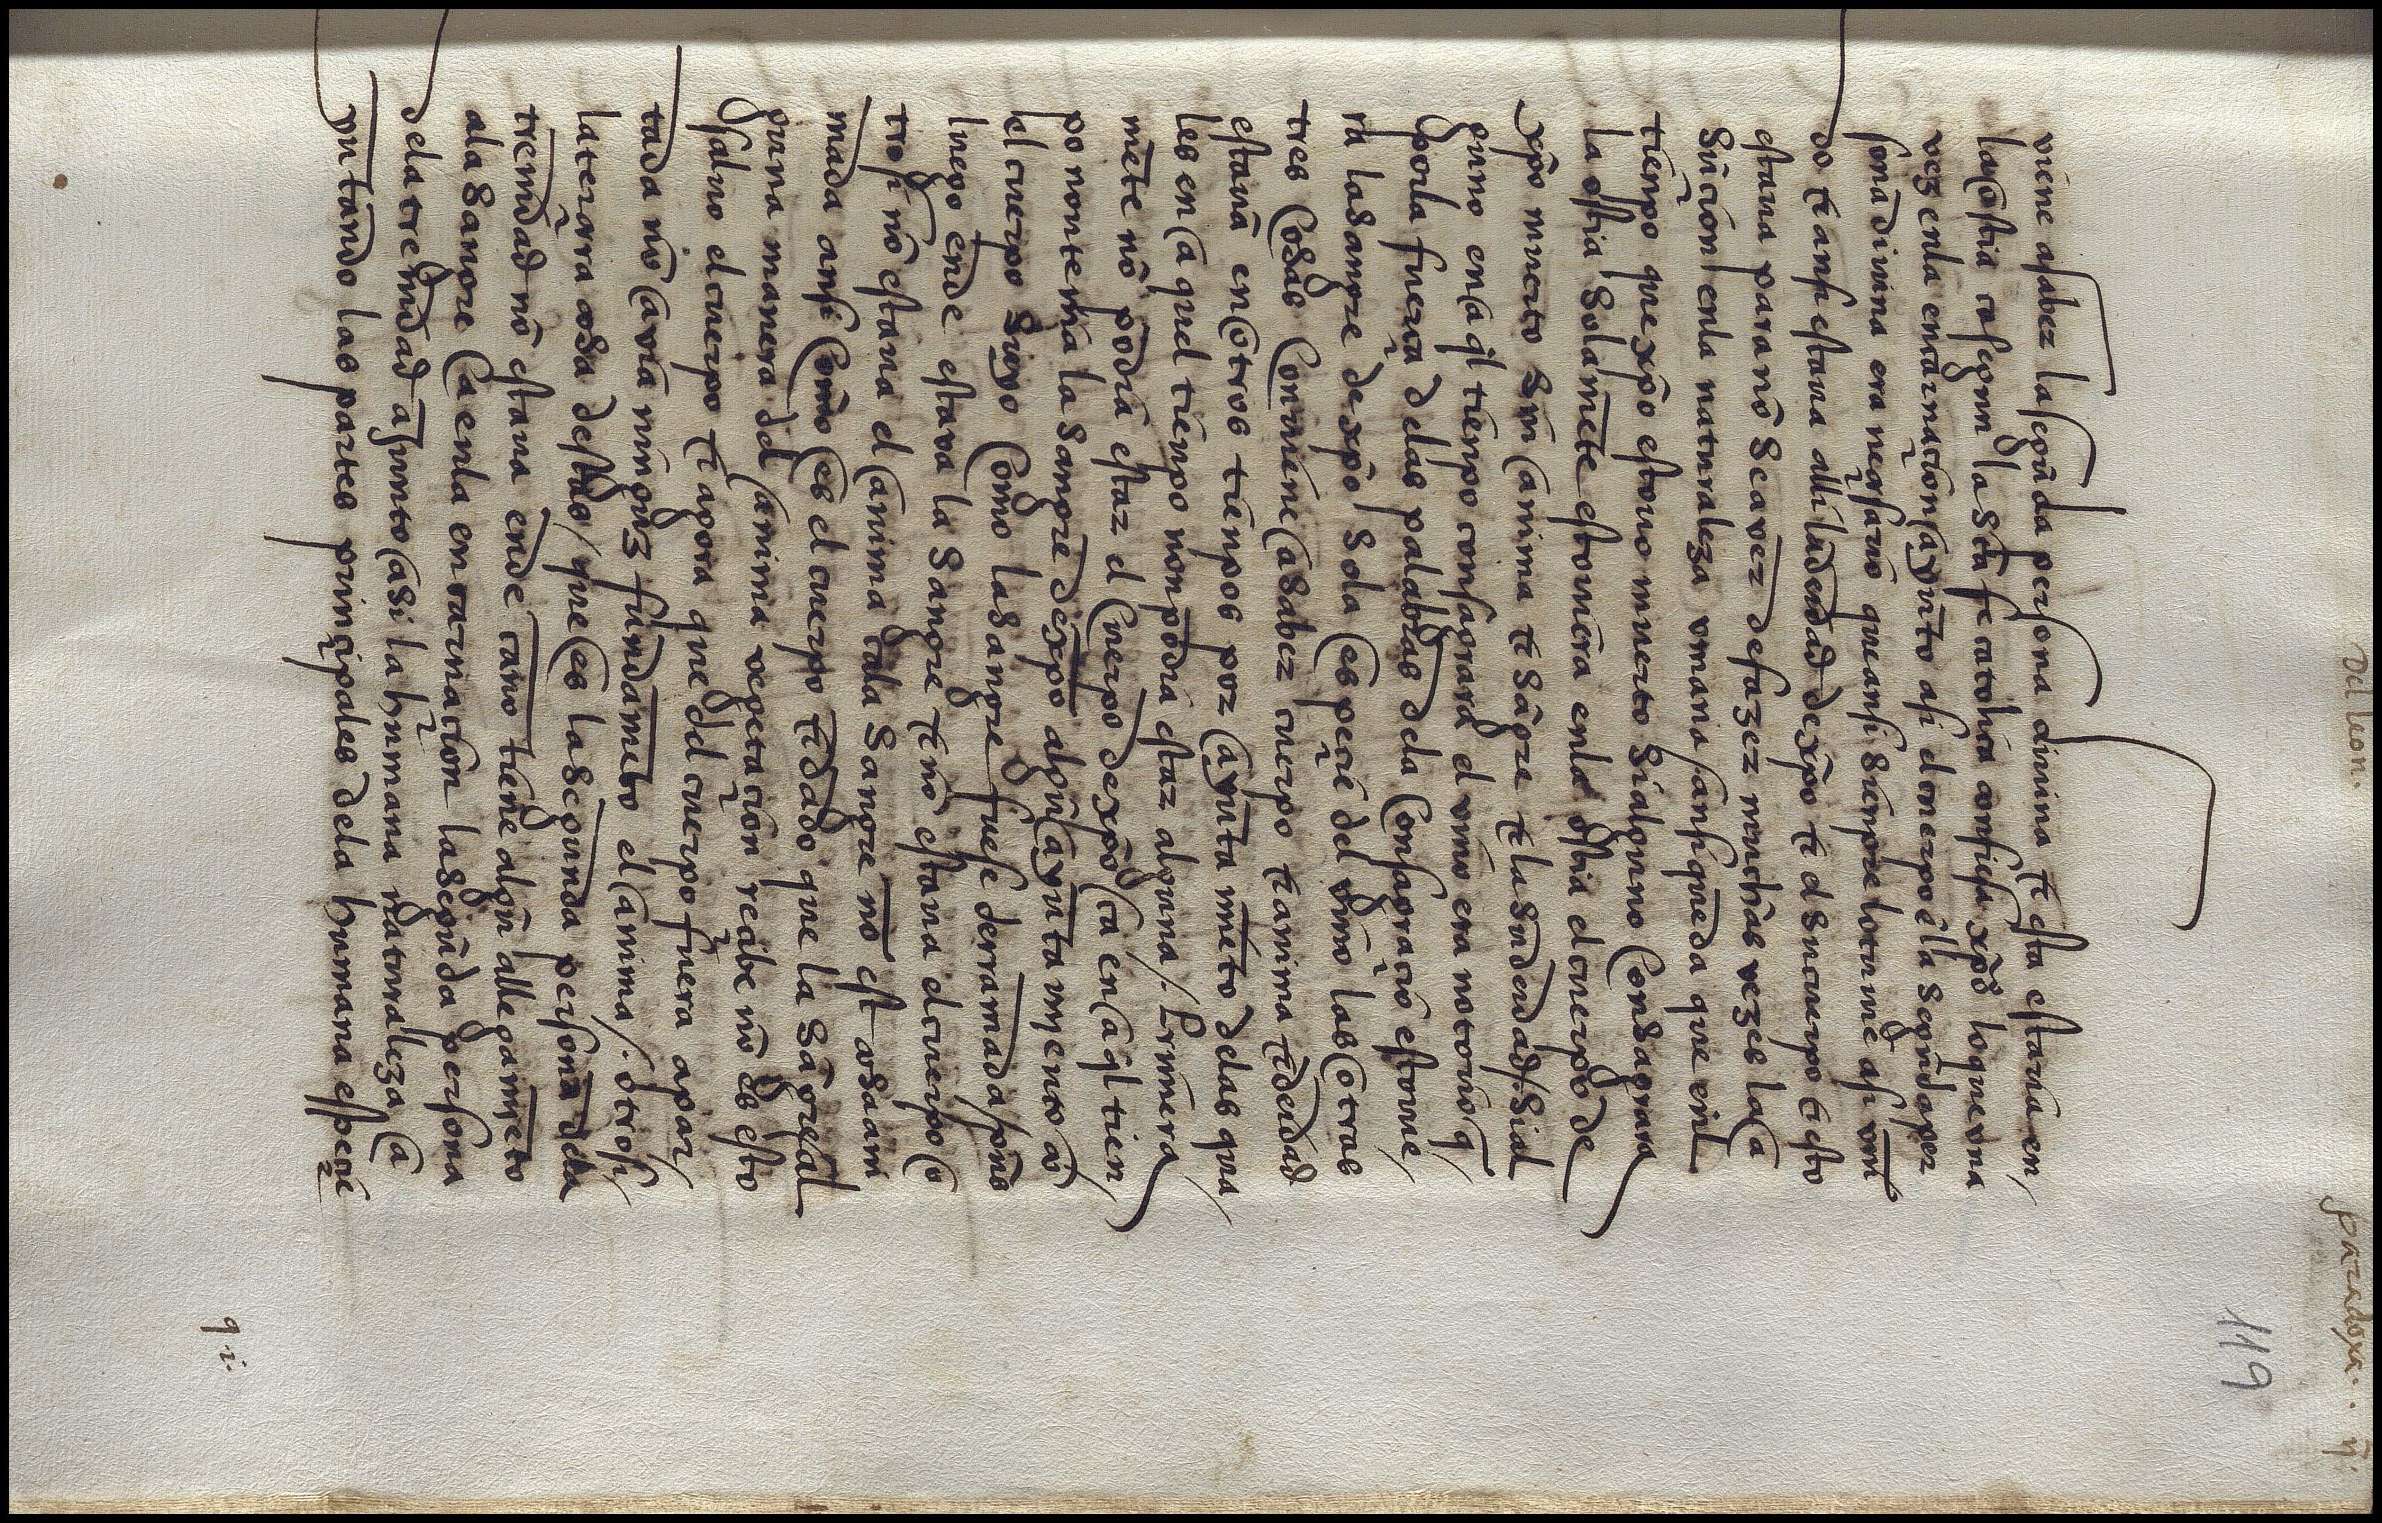 Del leon. paradoxa. ij.
119
viene asabez la segũda persona diuina τ esta estaua en
la ostia ca segun la sctã fe catolica confiesa xp̃o lo que vna
vez en la encarnaciõn ayũto asi el cuerpo ẽlla segũda per
sona diuina era neçesario que ansi sienpre lo touiẽ asi vni
do τ ansi estaua alli la deidad de xp̃o τ el su cuerpo τ esto
estaua para nõ se avez de fazez muchas vezes la a
sũcion en la naturaleza vmana / ansi queda que en l
tienpo que xp̃o estouo muerto si alguno consagrara
la ostia solamẽte estouiera enla ostia el cuerpo de
xp̃o muerto sin anima τ sãgre τ la su deidad / si al
guno en aql̃ tienpo consagrara el vino era notorio q̃
por la fuerça delas palabras dela consagraciõ estouie
ra la sangre de xp̃o sola es peçie del vino las otras
tres cosas conuiene asabez cuerpo τ anima τ deidad
estauã en otros tienpos por ayũta miẽto delas qua
les en aquel tienpo non podia estaz alguna / Primera
mẽte nõ podia estaz el cuerpo de xp̃o ca en aql̃ tien
po non tenia la sangre de xp̃o algũ ayũta miento cõ
el cuerpo suyo como la sangre fuese derramada / pues
luego ende estava la sangre τ nõ estaua el cuerpo o
trosi nõ estaua el anima ca la sangre nõ est cosa ani
mada ansi como es el cuerpo τ dado que la sãgre al
guna manera del anima vegetaciõn reçibe nõ es esto
saluo el cuerpo τ agora que del cuerpo fuera apar
tada nõ avia ninguz fundamẽto el anima /. otrosi
la terçera cosa destas / que es la segunda persona dela
trenidad nõ estaua ende ca no tiene algũn allegamiẽto
ala sangre ca enla encarnaciõn la segũda persona
dela trenidad ayunto a si la humana naturaleza a
yuntando las partes prinçipales dela humana espeçie
q.i.